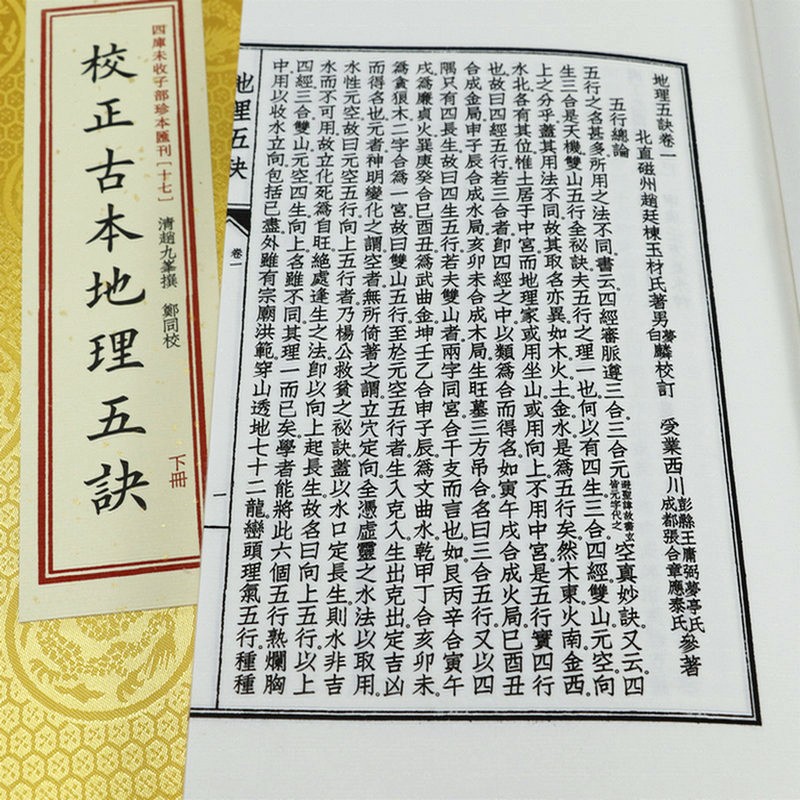 地理五訣卷一
北直磁州趙廷棟玉材氏著男夢白麟校訂 受業西川彭縣王庸弼夢亭氏成都張合章應泰氏參著
五行總論
五行之名甚多。所用之法不同。書云。四經審脈遵三合。三合元避聖諱故書玄皆元字代之空真妙訣。又云。四
生三合是天機。雙山五行全秘訣。夫五行之理一也。何以有四生三合四經雙山元空向
上之分乎。蓋其用法不同。故其取名亦異。如木火土金水。是為五行矣。然木東火南金西
水北。各有其位。惟土居于中宮。而地理家或用坐山。或用向上。不用中宮。是五行實四行
也。故曰四經五行。若三合者。卽四經之中以類為合而得名。如寅午戌合成火局。巳酉丑
合成金局。申子辰合成水局。亥卯未合成木局。生旺墓三方吊合。名曰三合五行。又以四
隅只有四長生。故曰四生五行。若夫雙山者。兩字同宮。合干支而言也。如艮丙辛合寅午
戌為廉貞火。巽庚癸合巳酉丑為武曲金。坤壬乙合申子辰為文曲水。乾甲丁合亥卯未
為貪狼木。二字合為一宮。故曰雙山五行。至於元空五行者。生入克入。生出克出。定吉凶
而得名也。元者。神明變化之謂。空者。無所倚著之謂。立穴定向。全憑虛靈之水法以取用。
水性元空。故曰元空五行。向上五行者。乃楊公救貧之秘訣。蓋以水口定長生。則水非吉
水而不可用。故立化死為自旺。絕處逢生之法。卽以向上起長生。故名曰向上五行。以上
四經三合雙山元空四生向上。各雖不同。其理一而已矣。學者能將此六個五行熟爛胸
中。用以收水立向。包括已盡。外雖有宗廟洪範穿山透地七十二龍巒頭理氣五行。種種
地理五訣
卷一
一
四庫未收子部珍本匯刊〔十七〕
校正古本地理五訣
清趙九峯撰 鄭同校
下冊